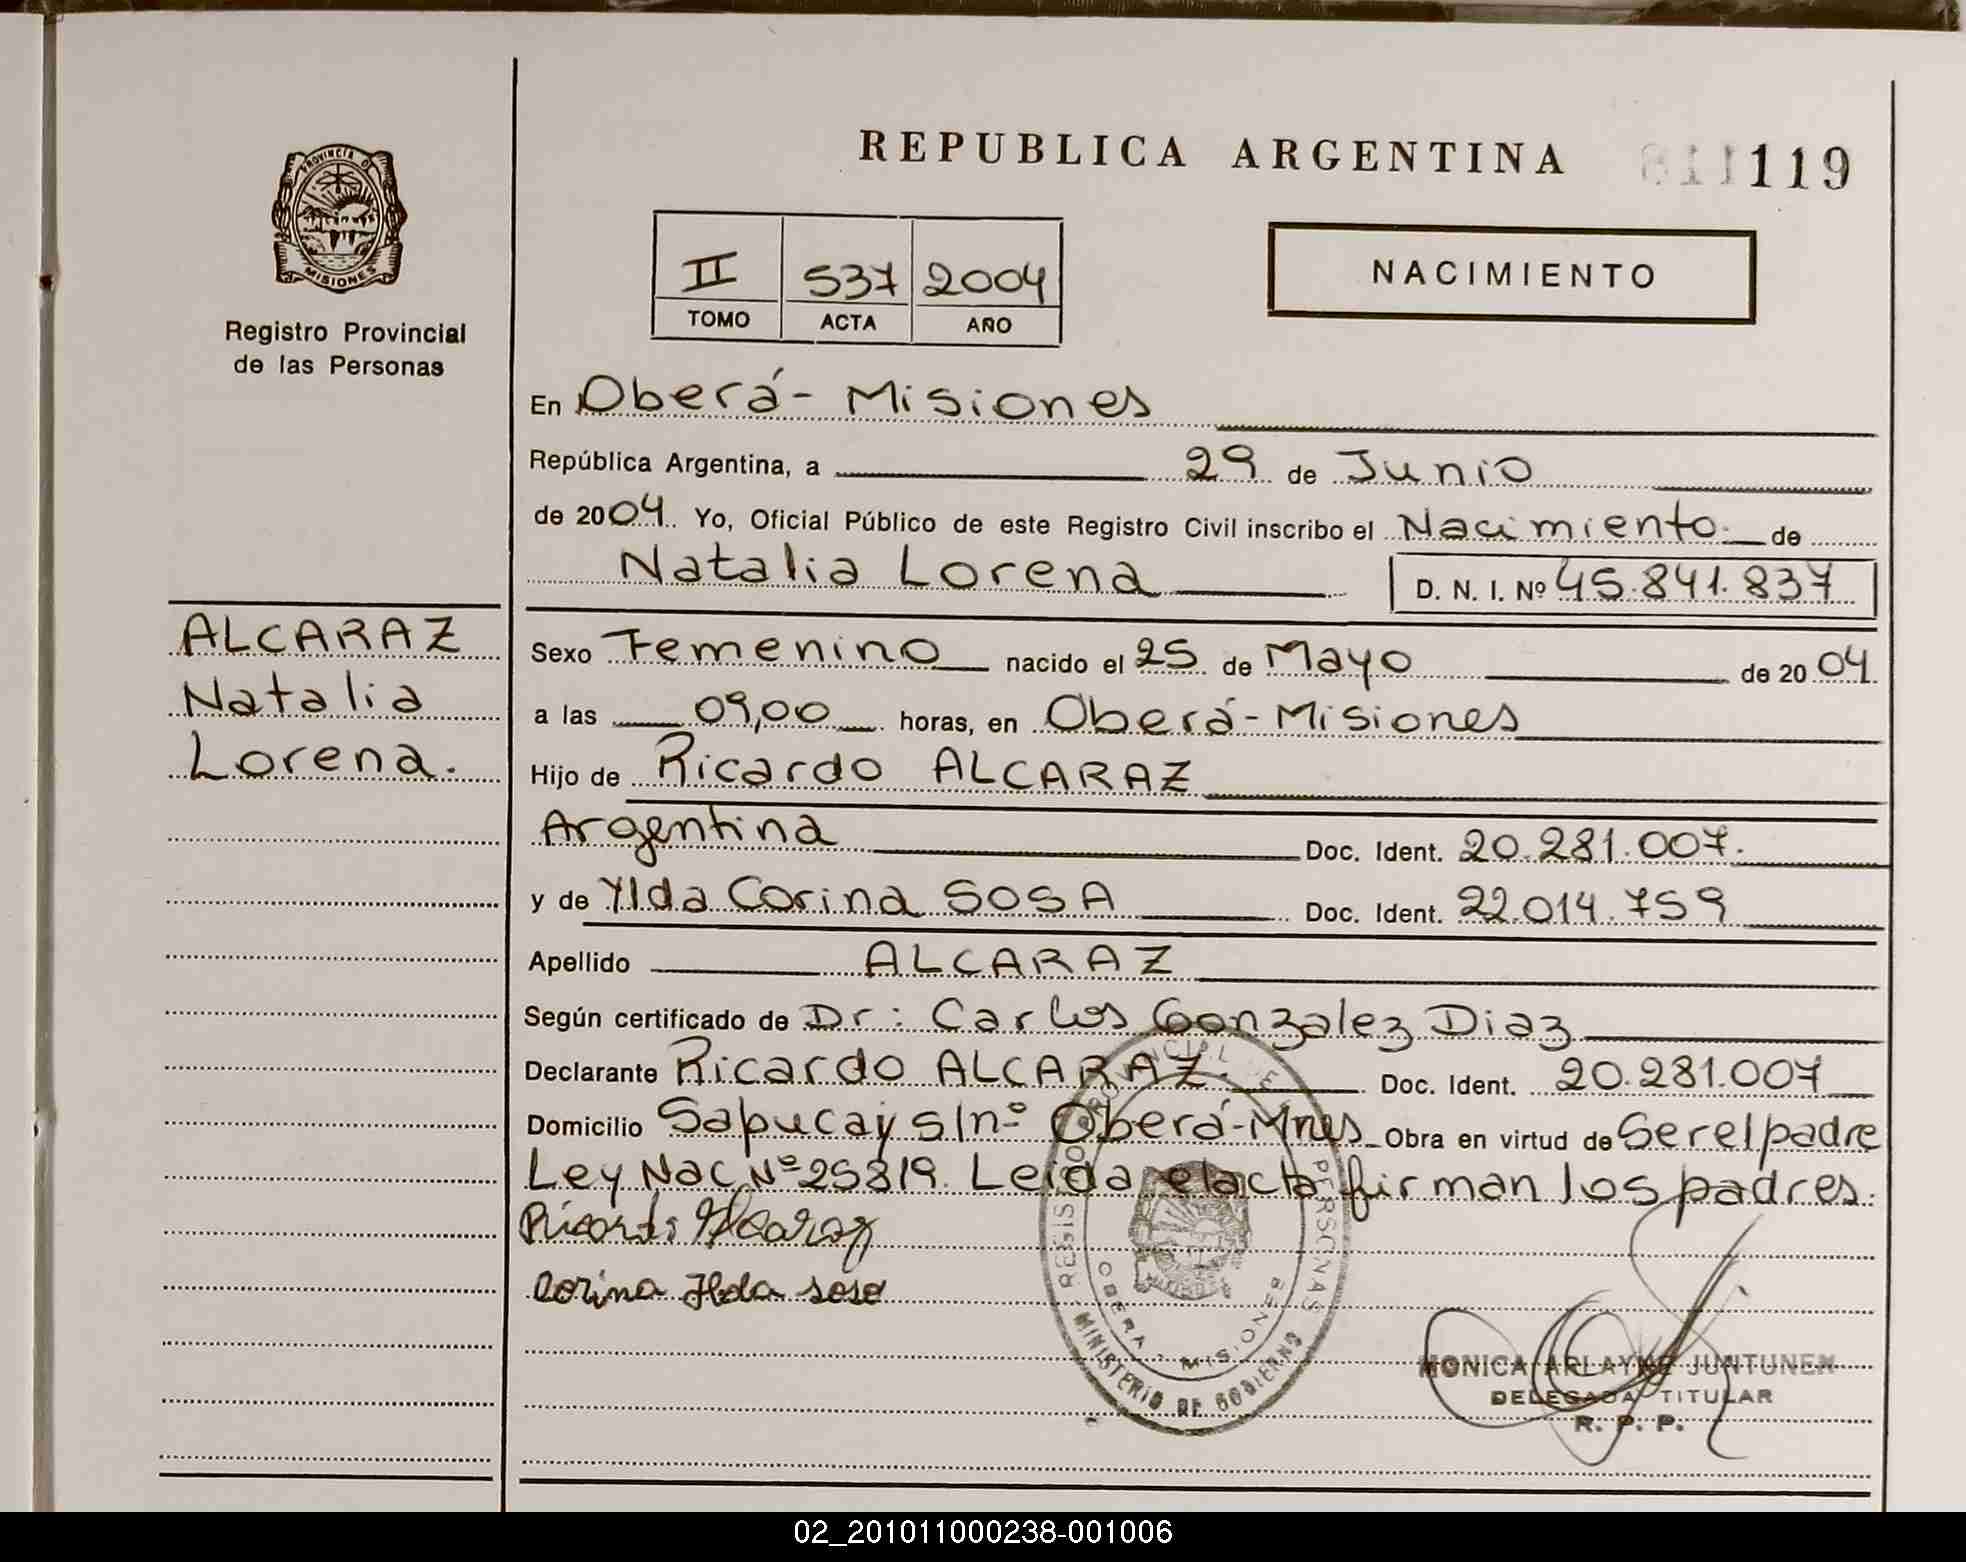 REPUBLICA ARGENTINA
119
PROVINCIA DE
MISIONES
Registro Provincial
de las Personas
II 537 2004
TOMO ACTA AÑO
NACIMIENTO
En Oberá- Misiones
República Argentina, a 29 de Junio
de 2004. Yo, Oficial Público de este Registro Civil inscribo el Nacimiento de
Natalia Lorena
D. N. I. Nº 45.841.837
ALCARAZ
Natalia
Lorena.
Sexo Femenino nacido el 25 de Mayo de 2004
a las 09,00 horas, en Oberá-Misiones
Hijo de Ricardo ALCARAZ
Argentina Doc. Ident. 20.281.007.
y de Ylda Corina SOSA Doc. Ident. 22.014.759
Apellido ALCARAZ
Según certificado de Dr: Carlos Gonzalez Diaz
Declarante Ricardo ALCARAZ. Doc. Ident. 20.281.007
Domicilio Sapucay s/nº Oberá-Mnes Obra en virtud de Ser el padre
Ley Nac Nº 25819. Leida el acta firman los padres.
Ricardo Alcaraz
Corina Ilda sosa
OBERA - MISIONES
MINISTERIO DE GOBIERNO
MONICA ARLAYNE JUNTUNEN
DELEGADA TITULAR
R. P. P.
02_201011000238-001006